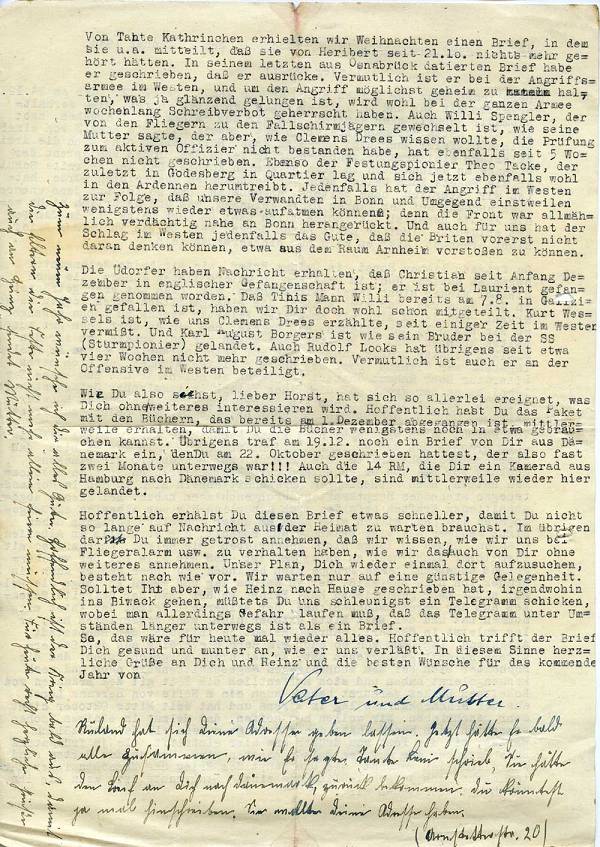 Von Tahte Kathrinchen erhielten wir Weihnachten einen Brief, in dem
sie u.a. mitteilt, daß sie von Heribert seit 21.10. nichts mehr ge=
hört hätten. In seinem letzten aus Osnabrück datierten Brief habe
er geschrieben, daß er ausrücke. Vermutlich ist er bei der Angriffs=
armee im Westen, und um den Angriff möglichst geheim zu hal,
ten, was ja glänzend gelungen ist, wird wohl bei der ganzen Armee
wochenlang Schreibverbot geherrscht haben. Auch Willi Spengler, der
von den Fliegern zu den Fallschirmjägern gewechselt ist, wie seine
Mutter sagte, der aber, wie Clemens Drees wissen wollte, die Prüfung
zum aktiven Offizier nicht bestanden habe, hat ebenfalls seit 5 Wo=
chen nicht geschrieben. Ebenso der Festungspionier Theo Tacke, der
zuletzt in Godesberg in Quartier lag und sich jetzt ebenfalls wohl
in den Ardennen herumtreibt. Jedenfalls hat der Angriff im Westen
zur Folge, daß unsere Verwandten in Bonn und Umgegend einstweilen
wenigstens wieder etwas aufatmen können; denn die Front war allmäh=
lich verdächtig nahe an Bonn herangerückt. Und auch für uns hat der
Schlag im Westen jedenfalls das Gute, daß die Briten vorerst nicht
daran denken können, etwa aus dem Raum Arnheim vorstoßen zu können.
Die Üdorfer haben Nachricht erhalten, daß Christian seit Anfang De=
zember in englischer Gefangenschaft ist; er ist bei Laurient gefan=
gen genommen worden. Daß Tinis Mann Willi bereits am 7.8. in Galizi=
en gefallen ist, haben wir Dir doch wohl schon mitgeteilt. Kurt Wes=
sels ist, wie uns Clemens Drees erzählte, seit einiger Zeit im Westen
vermißt. Und Karl August Borgers ist wie sein Bruder bei der SS
(Sturmpionier) gelandet. Auch Rudolf Looks hat übrigens seit etwa
vier Wochen nicht mehr geschrieben. Vermutlich ist auch er an der
Offensive im Westen beteiligt.
Wie Du also siehst, lieber Horst, hat sich so allerlei ereignet, was
Dich ohne weiteres interessieren wird. Hoffentlich hast Du das Paket
mit den Büchern, das bereits am 1. Dezember abgegangen ist, mittler=
weile erhalten, damit Du die Bücher wenigstens noch in etwa gebrau=
chen kannst. Übrigens traf am 19.12. noch ein Brief von Dir aus Dä=
nemark ein, den Du am 22. Oktober geschrieben hattest, der also fast
zwei Monate unterwegs war!!! Auch die 14 RM, die Dir ein Kamerad aus
Hamburg nach Dänemark schicken sollte, sind mittlerweile wieder hier
gelandet.
Hoffentlich erhälst Du diesen Brief etwas schneller, damit Du nicht
so lange auf Nachricht aus der Heimat zu warten brauchst. Im übrigen
darfst Du immer getrost annehmen, daß wir wissen, wie wir uns bei
Fliegeralarm usw. zu verhalten haben, wie wir das auch von Dir ohne
weiteres annehmen. Unser Plan, Dich wieder einmal dort aufzusuchen,
besteht nach wie vor. Wir warten nur auf eine günstige Gelegenheit.
Solltet Ihr aber, wie Heinz nach Hause geschrieben hat, irgendwohin
ins Biwack gehen, müßtets Du uns schleunigst ein Telegramm schicken,
wobei man allerdings Gefahr laufen muß, daß das Telegramm unter Um=
ständen länger unterwegs ist als ein Brief.
So, das wäre für heute mal wieder alles. Hoffentlich trifft der Brief
Dich gesund und munter an, wie er uns verläßt. In diesem Sinne herz=
liche Grüße an Dich und Heinz und die besten Wünsche für das kommende
Jahr von
Vater und Mutter.
Ruland hat sich deine Adresse geben lassen. Jetzt hätte Er bald
alle zusammen, wie Er sagte. Tante schrieb, Sie hätte
den Brief an Dich nach Dänemark, zurück bekommen. Du könntest
ja mal hinschreiben. Sie wollte deine Adresse haben.
(Arnstätterstr. 20)
Zum neuen Jahr wünsche ich Dir alles Gute. Hoffentlich ist der Krieg bald aus, damit